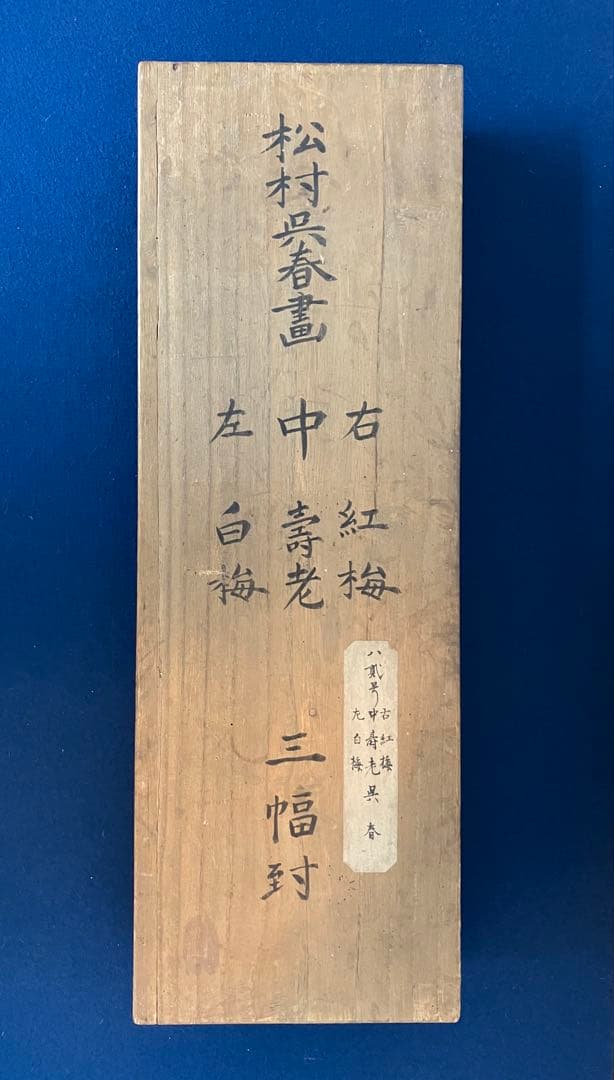 松村呉春畫
右 紅梅
中 壽老
左 白梅
三幅対
八貳号
右 紅梅
中 壽老
左 白梅
呉春